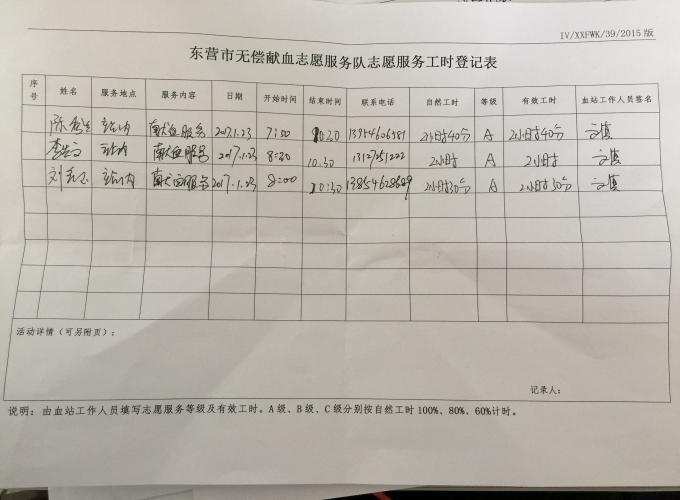 IV/XXFWK/39/2015 版
东营市无偿献血志愿服务队志愿服务工时登记表
序号 姓名 服务地点 服务内容 日期 开始时间 结束时间 联系电话 自然工时 等级 有效工时 血站工作人员签名
站内 献血服务 2017.1.23 7:50 10:30 13954606581 2小时40分 A 2小时40分
站内 献血服务 2017.1.23 8:30 10:30 2小时 A 2小时
站内 献血服务 2017.1.23 8:00 10:30 2小时30分 A 2小时30分
活动详情（可另附页）：
记录人：
说明：由血站工作人员填写志愿服务等级及有效工时。A 级、B 级、C 级分别按自然工时 100%、80%、60%计时。